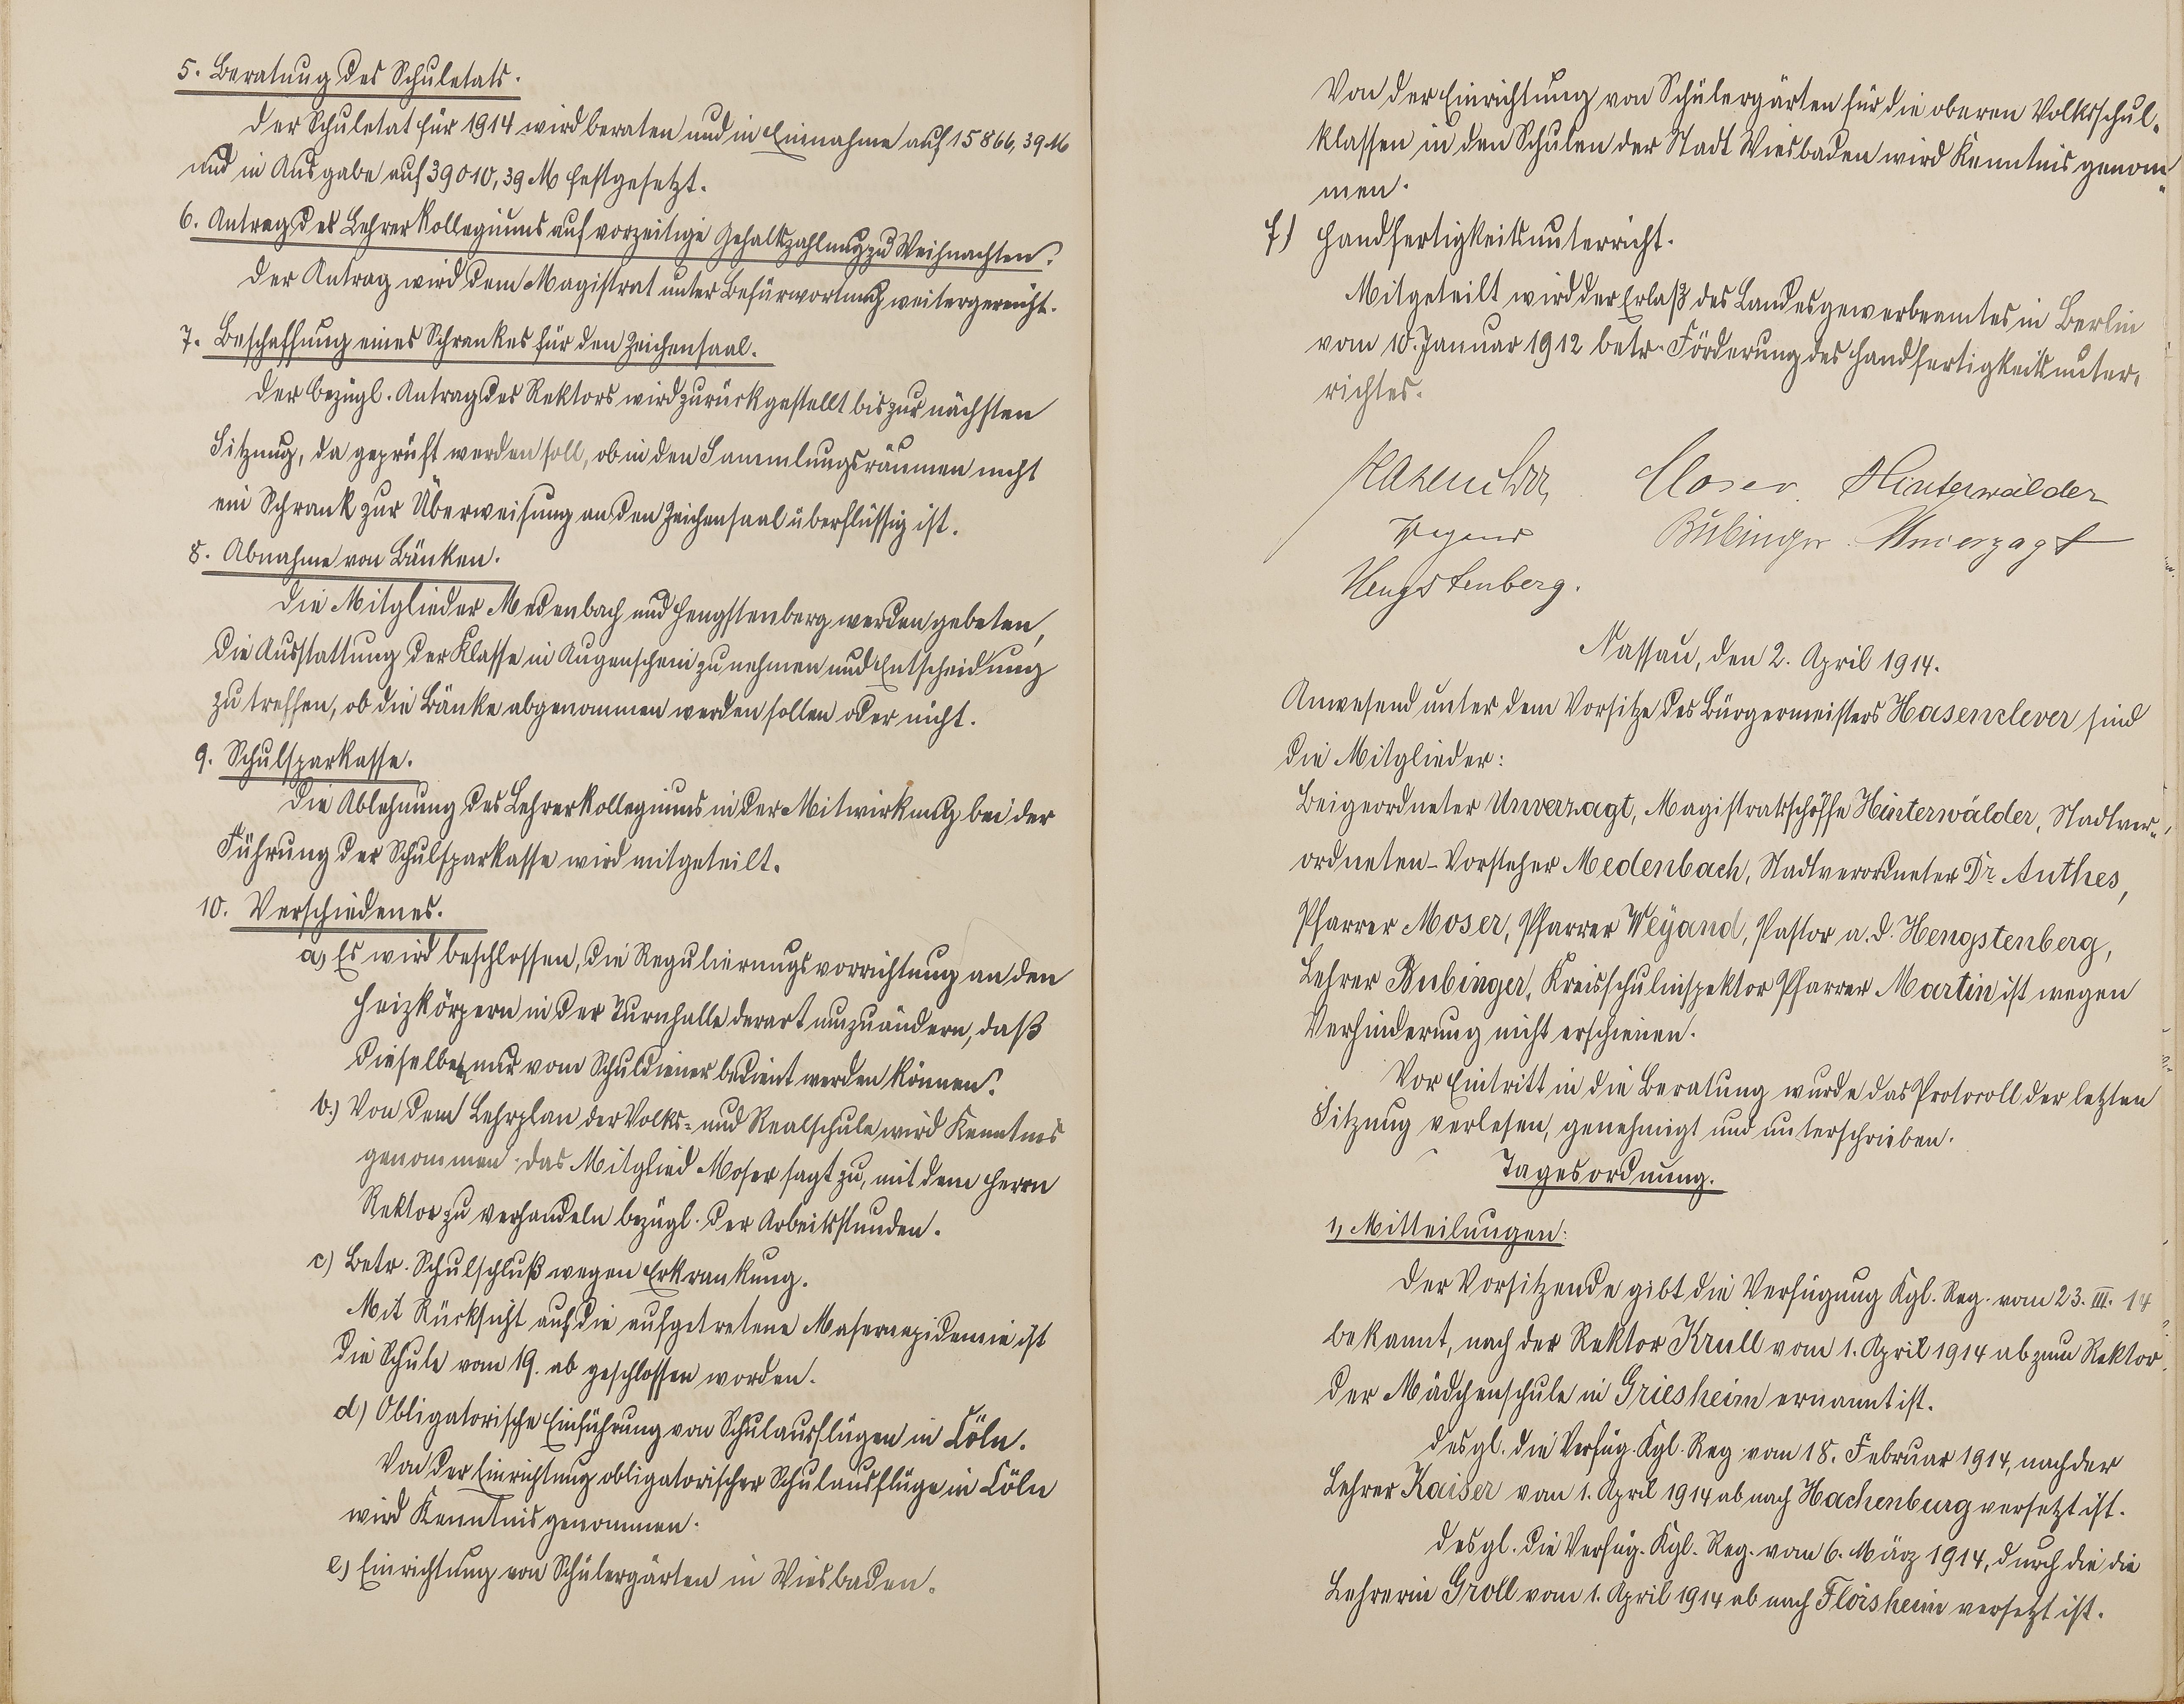 5. Beratung des Schuletats.
Der Schuletat für 1914 wird beraten und in Einnahme auf 15866,39 M
und in Ausgabe auf 39010,39 M festgesetzt.
6. Antrag des Lehrerkollegiums auf vorzeitige Gehaltszahlung zu Weihnachten.
Der Antrag wird dem Magistrat unter Befürwortung weitergereicht.
7. Beschaffung eines Schrankes für den Zeichensaal.
Der bezügl. Antrag des Rektors wird zurückgestellt bis zur nächsten
Sitzung, da geprüft werden soll, ob in den Sammlungsräumen nicht
ein Schrank zur Überweisung an den Zeichensaal überflüssig ist.
8. Abnahme von Bänken.
Die Mitglieder Medenbach und Hengstenberg werden gebeten,
die Ausstattung der Klasse in Augenschein zu nehmen und Entscheidung
zu treffen, ob die Bänke abgenommen werden sollen oder nicht.
9. Schulsparkasse.
Die Ablehnung des Lehrerkollegiums in der Mitwirkung bei der
Führung der Schulsparkasse wird mitgeteilt.
10. Verschiedenes.
a) Es wird beschlossen, die Regulierungsvorrichtung an den
Heizkörpern in der Turnhalle derart umzuändern, daß
dieselben nur vom Schuldiener bedient werden können.
b.) Von dem Lehrplan der Volks- und Realschule wird Kenntnis
genommen. Das Mitglied Moser sagt zu, mit dem Herrn
Rektor zu verhandeln bezügl. der Arbeitsstunden.
c) Betr. Schulschluß wegen Erkrankung.
Mit Rücksicht auf die aufgetretene Masernepidemie ist
die Schule vom 19. ab geschlossen worden.
d) Obligatorische Einführung von Schulausflügen in Cöln.
Von der Einrichtung obligatorischer Schulausflüge in Cöln
wird Kenntnis genommen.
e) Einrichtung von Schülergärten in Wiesbaden.
Von der Einrichtung von Schülergärten für die oberen Volksschul-
klassen in den Schulen der Stadt Wiesbaden wird Kenntnis genom-
men.
f) Handfertigkeitsunterricht.
Mitgeteilt wird der Erlaß des Landesgewerbeamtes in Berlin
vom 10. Januar 1912 betr. Förderung des Handfertigkeitsunter-
richtes.
Moser. Hinterwälder
Bubinger Unverzagt
Hengstenberg.
Nassau, den 2. April 1914.
Anwesend unter dem Vorsitze des Bürgermeisters Hasenclever sind
die Mitglieder:
Beigeordneter Unverzagt, Magistratsschöffe Hinterwälder, Stadtver-
ordneten-Vorsteher Medenbach, Stadtverordneter Dr. Anthes,
Pfarrer Moser, Pfarrer Weyand, Pastor a. D. Hengstenberg,
Lehrer Bubinger, Kreisschulinspektor Pfarrer Martin ist wegen
Verhinderung nicht erschienen.
Vor Eintritt in die Beratung wurde das Protocoll der letzten
Sitzung verlesen, genehmigt und unterschrieben.
Tagesordnung.
1, Mitteilungen:
Der Vorsitzende gibt die Verfügung Kgl. Reg. vom 23. III. 14
bekannt, nach der Rektor Krull vom 1. April 1914 ab zum Rektor
der Mädchenschule in Griesheim ernannt ist.
desgl. die Verfüg. Kgl. Reg. vom 18. Februar 1914, nach der
Lehrer Kaiser vom 1. April 1914 ab nach Hachenburg versetzt ist.
desgl. die Verfüg. Kgl. Reg. vom 6. März 1914, durch die die
Lehrerin Groll vom 1. April 1914 ab nach Flörsheim versetzt ist.